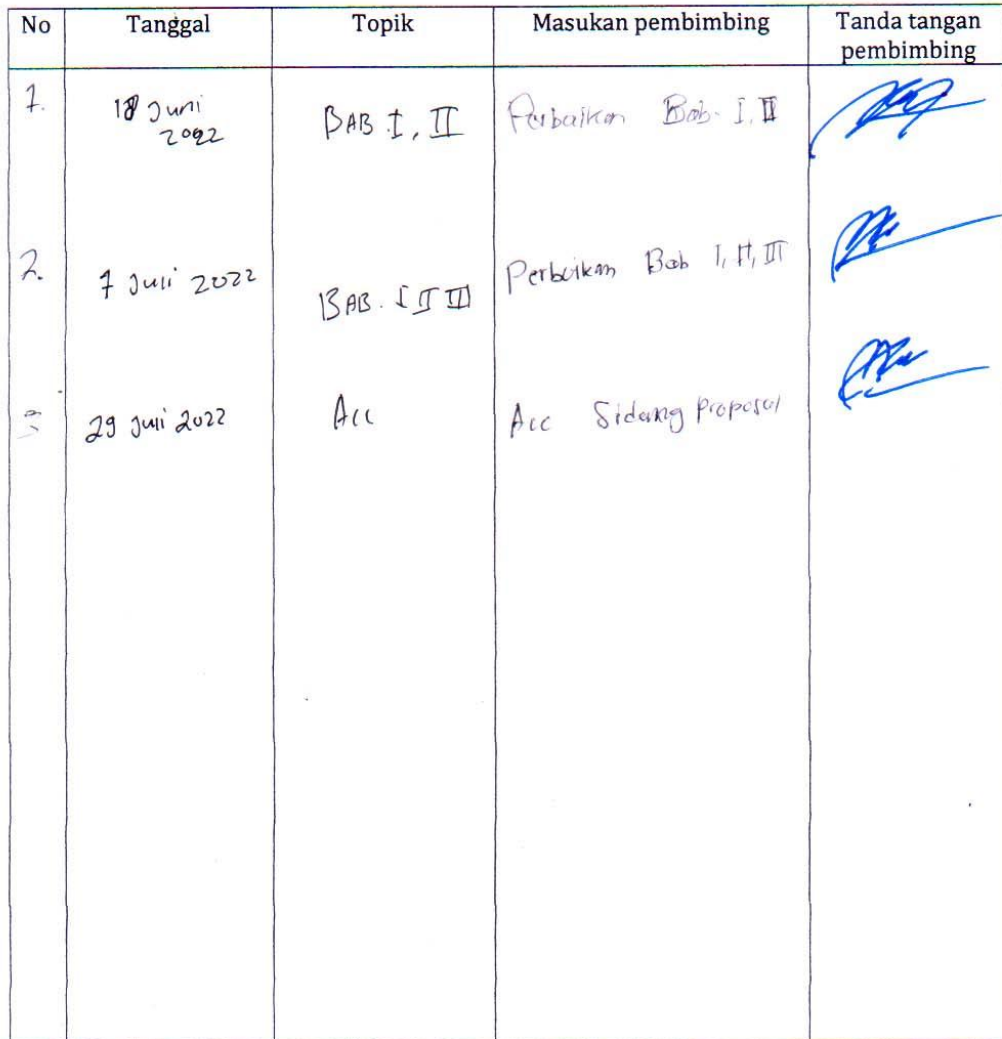 No Tanggal Topik Masukan pembimbing Tanda tangan
pembimbing
1. 18 Juni
2022 BAB I, II Perbaikan Bab. I, II
2. 7 Juli 2022 BAB. I II III Perbaikan Bab I, II, III
29 Juli 2022 Acc Acc Sidang Proposal